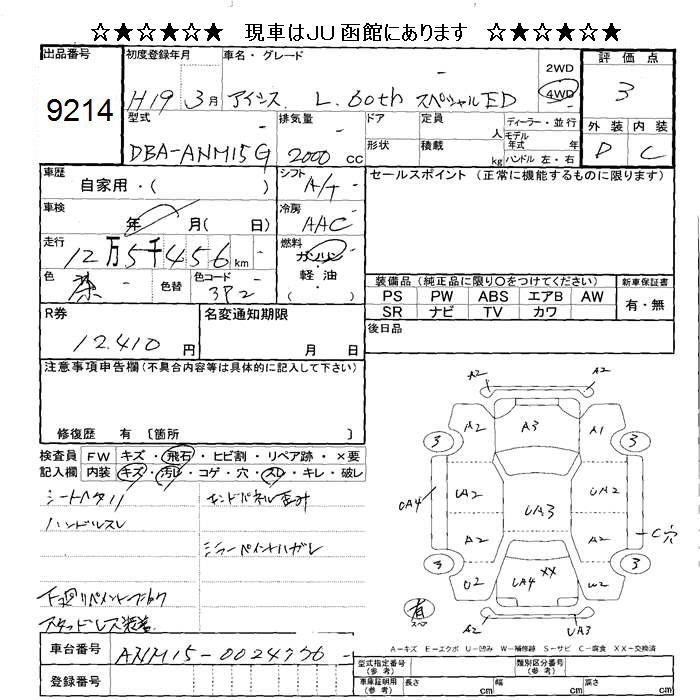 ☆★☆★☆★ 現車はJU函館にあります ☆★☆★☆★
出品番号 初度登録年月 車名・グレード 評価点
9214 H19年 3月 アイシス L. 60th スペシャルED 2WD 4WD 3
型式 排気量 ドア 定員 人 ディーラー・並行 外装 内装
DBA-ANM15G 2000 cc 形状 積載 kg モデル年式 年式 ハンドル 左・右 D C
車歴 自家用・( ) シフト A/T セールスポイント (正常に機能するものに限ります)
車検 年 月( 日) 冷房 AAC
走行 12万5千456 km 燃料 ガソリン
色 茶 色替 色コード 3P2 軽油 ( )
装備品 (純正品に限り○をつけてください) 新車保証書
PS PW ABS エアB AW 有・無
SR ナビ TV カワ
R券 12.410 円 名変通知期限 月 日 後日品
注意事項申告欄 (不具合内容等は具体的に記入して下さい)
修復歴 有 〔箇所 〕
検査員 FW キズ・飛石・ヒビ割・リペア跡・×要
記入欄 内装 キズ・汚レ・コゲ・穴・スレ・キレ・破レ
シートヘタリ
ハンドルスレ
エンドパネル歪み
スタッドレス装着
A2 A2
A2 A3 A1
3 3
UA4 UA2 UA3 UA2 C穴
A2 A2
3 3
U2 UA4 XX W2
有 スペア A2 UA3
A-キズ E-エクボ U-凹み W-補修跡 S-サビ C-腐食 XX-交換済
車台番号 ANM15-0024776
登録番号
型式指定番号 (参考) 類別区分番号 (参考)
車庫証明用 (参考) 長さ cm 幅 cm 高さ cm